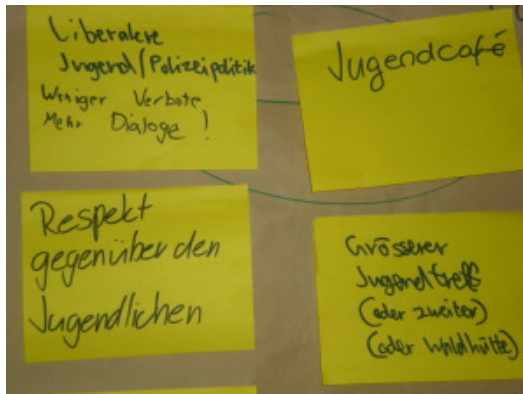 Liberalere
Jugend/Polizeipolitik
Weniger Verbote
Mehr Dialoge !
Jugendcafé
Respekt
gegenüber den
Jugendlichen
Grösserer
Jugendtreff
(oder zweiter)
(oder Waldhütte)